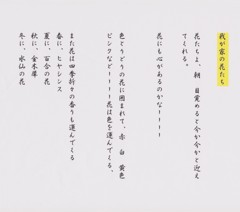 我が家の花たち
花たちよ、朝 目覚めると今か今かと迎え
てくれる。
花にも心があるのかなーーーー
色とりどりの花に囲まれて、赤 白 黄色
ピンクなどーーーー花は色を運んでくる。
また花は四季折々の香りも運んでくる
春に、ヒヤシンス
夏に、百合の花
秋に、金木犀
冬に、水仙の花